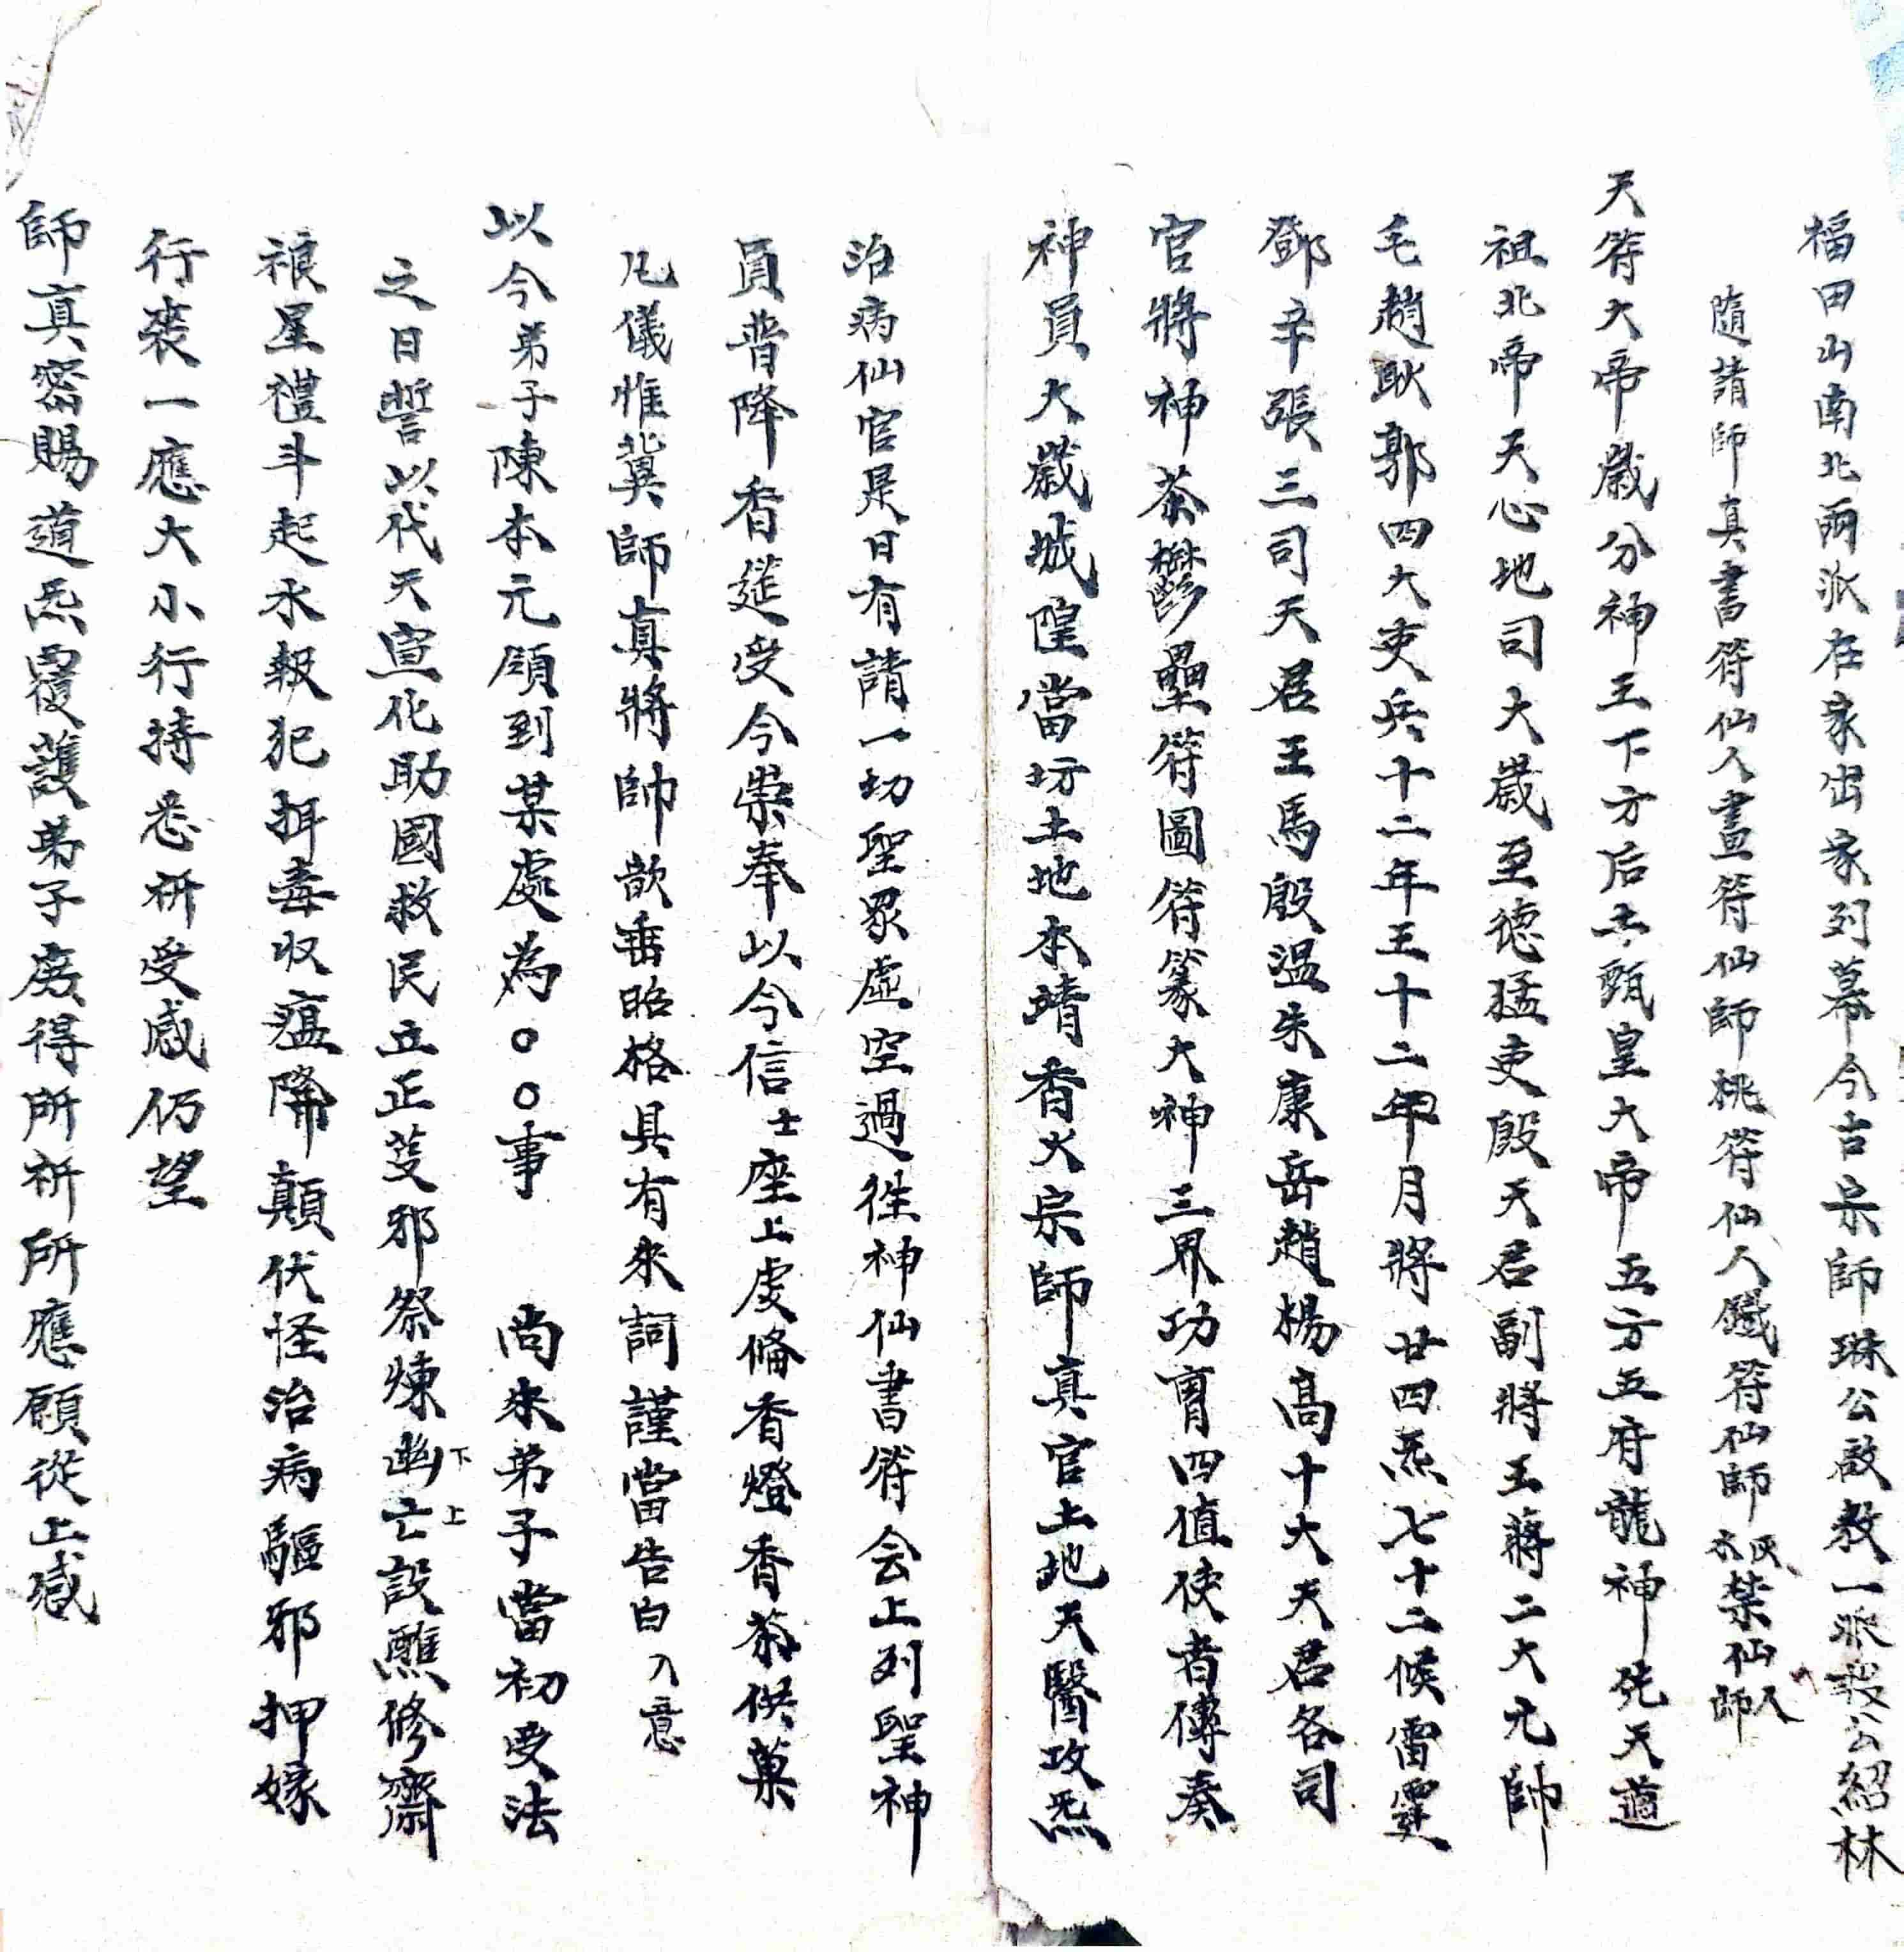 福田山南北兩派在家出家列幕今古宗師琳公啟教一派公紹林
隨請師真書符仙人畫符仙師桃符仙人鐵符仙師禁仙師人
天符大帝歲分神王下方后土甄皇大帝五方五府龍神先天道
祖北帝天心地司大歲至德猛吏殷天君副將王蔣二大元帥
毛趙耿郭四大吏兵十二年王十二月將廿四炁七十二候雷霆
鄧辛張三司天君王馬殷溫朱康岳趙楊高十大天君各司
官將神荼欝壘符圖符篆大神三界功曹四值使者傳奏
神員大歲城隍當坊土地本靖香火宗師真官土地天醫攻炁
治病仙官是日有請一切聖眾虛空過徃神仙書符会上列聖神
員普降香筵受今崇奉以今信士座上虔俻香燈香茶供菓
凡儀惟冀師真將帥歆垂昭格具有來詞謹當告白入意
以今弟子陳本元領到某處為○○事 尚來弟子當初受法
之日誓以代天宣化助國救民立正芟邪祭煉幽下亡上設醮修齋
禳星禮斗起水報犯揖毒收瘟降顛伏怪治病驅邪押嫁
行喪一應大小行持悉祈受感仍望
師真密賜道炁覆護弟子房得所祈所應願從上感